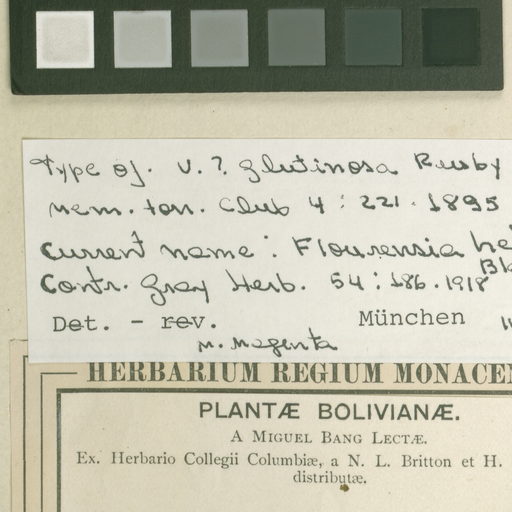 Type of. V. ? glutinosa Rusby
mem. torr. Club 4 : 221. 1895
Current name : Flourensia he
Bl
Contr. Gray Herb. 54 : 186. 1918
Det. - rev. München
M. Magenta
HERBARIUM REGIUM MONACE
PLANTÆ BOLIVIANÆ.
A MIGUEL BANG LECTÆ.
Ex. Herbario Collegii Columbiæ, a N. L. Britton et H.
distributæ.